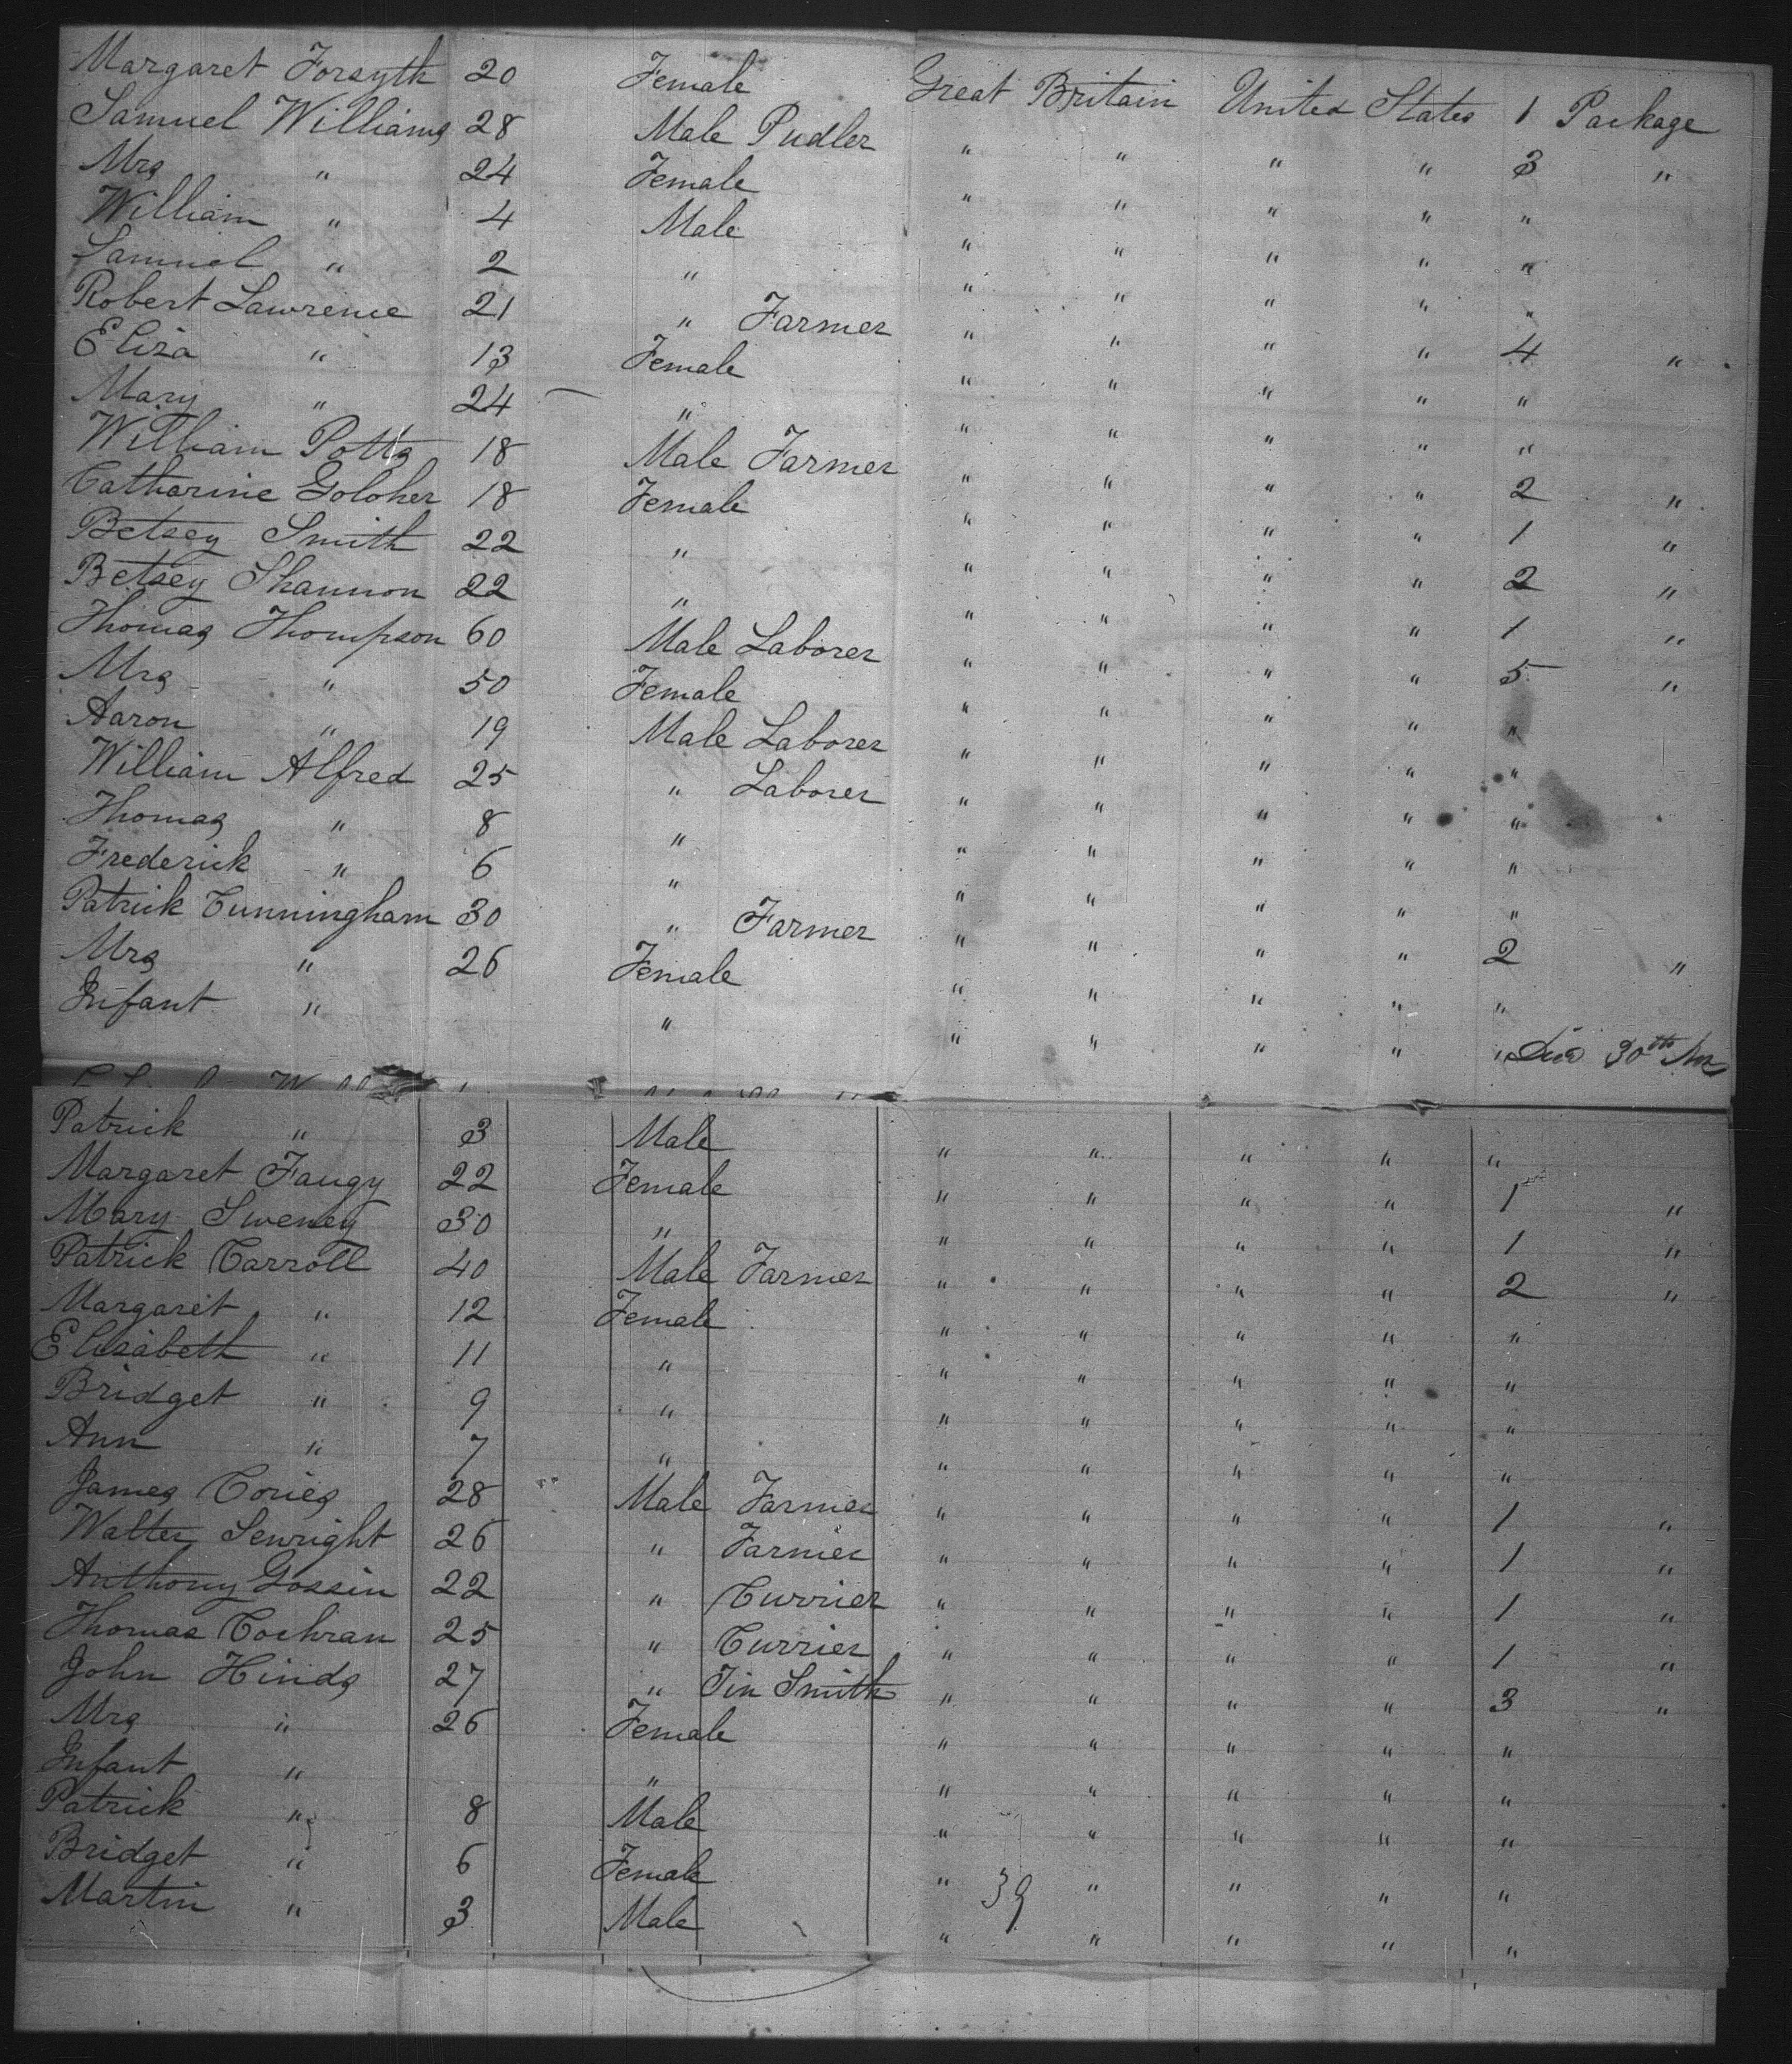 Margaret Forsyth 20 Female Great Britain United States 1 Package
Samuel Williams 28 Male Pudler " " " " 3 "
Mrs " 24 Female " " " " "
William " 4 Male " " " " "
Samuel " 2 " " " " " "
Robert Lawrence 21 " Farmer " " " " 4 "
Eliza " 13 Female " " " " "
Mary " 24 " " " " " "
William Potts 18 Male Farmer " " " " 2 "
Catharine Goloher 18 Female " " " " 1 "
Betsey Smith 22 " " " " " 2 "
Betsey Shannon 22 " " " " " 1 "
Thomas Thompson 60 Male Laborer " " " " 5 "
Mrs " 50 Female " " " " "
Aaron " 19 Male Laborer " " " " "
William Alfred 25 " Laborer " " " " "
Thomas " 8 " " " " " "
Frederick " 6 " " " " " "
Patrick Cunningham 30 " Farmer " " " " 2 "
Mrs " 26 Female " " " " "
Infant " " " " " " " Died 30th
Patrick " 3 Male " " " " "
Margaret Faugy 22 Female " " " " 1 "
Mary Sweney 30 " " " " " 1 "
Patrick Carroll 40 Male Farmer " " " " 2 "
Margaret " 12 Female " " " " "
Elisabeth " 11 " " " " " "
Bridget " 9 " " " " " "
Ann " 7 " " " " " "
James Cories 28 Male Farmer " " " " 1 "
Walter Senright 26 " Farmer " " " " 1 "
Anthony Gossin 22 " Currier " " " " 1 "
Thomas Cochran 25 " Currier " " " " 1 "
John Hinds 27 " Tin Smith " " " " 3 "
Mrs " 26 Female " " " " "
Infant " " " " " " "
Patrick " 8 Male " " " " "
Bridget " 6 Female " " " " "
39
Martin " 3 Male " " " " "